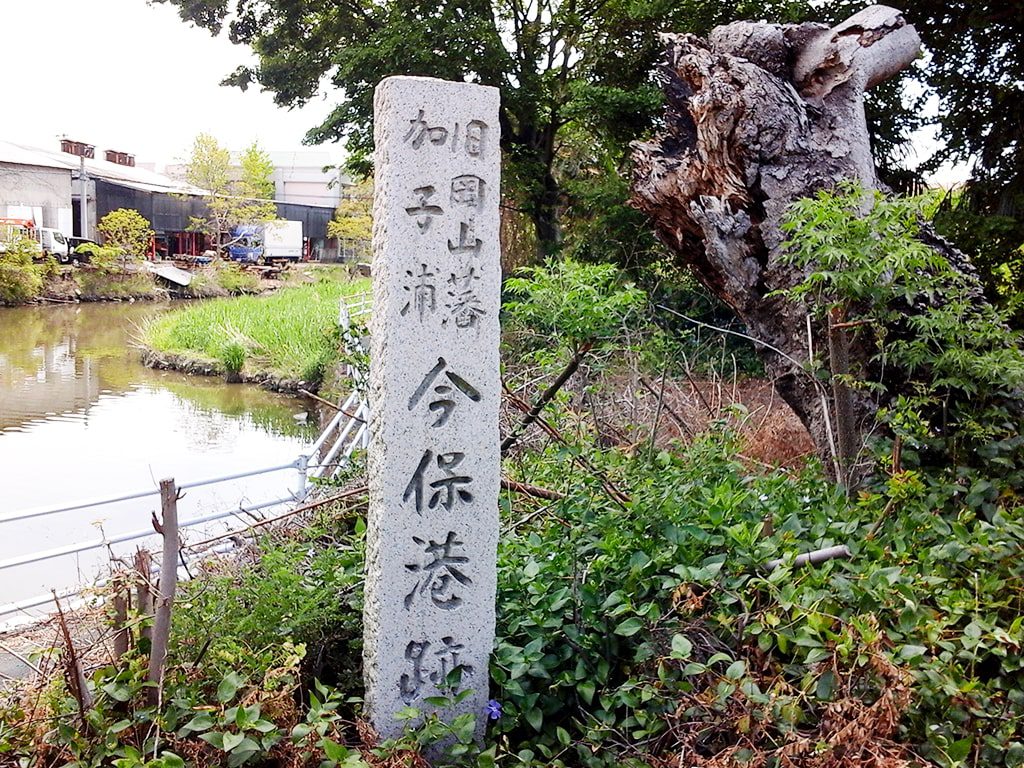 旧岡山藩
加子浦
今保港跡